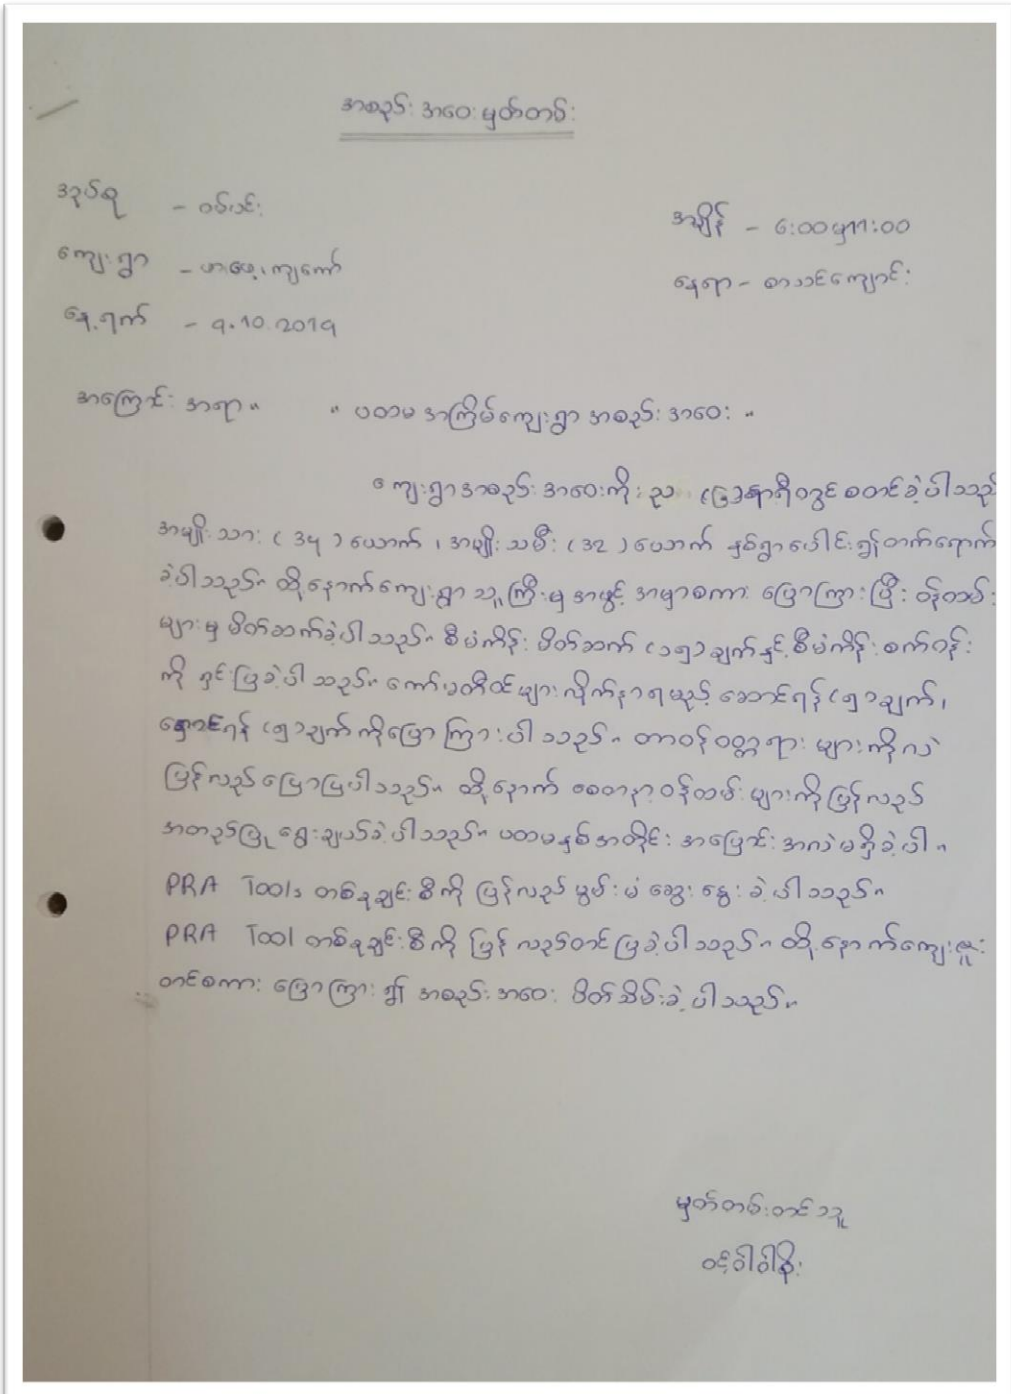 အစည်းအဝေးမှတ်တမ်း
အုပ်စု - ဝမ်းပင်း
အချိန် - ၆:၀၀ မှ ၁၁:၀၀
ကျေးရွာ - ဟဖေ့၊ ကျကော်
နေရာ - စာသင်ကျောင်း
နေ့ရက် - ၅.10.2019
အကြောင်းအရာ။ " ပထမအကြိမ်ကျေးရွာအစည်းအဝေး "
ကျေးရွာအစည်းအဝေးကို ည (၆)နာရီတွင် စတင်ခဲ့ပါသည်
အမျိုးသား (၃၅) ယောက်၊ အမျိုးသမီး (၃၁) ယောက် နှစ်ရွာပေါင်း၍တက်ရောက်
ခဲ့ပါသည်။ ထို့နောက်ကျေးရွာသူကြီးမှ အဖွင့်အမှာစကား ပြောကြားပြီး ဝန်ထမ်း
များမှ မိတ်ဆက်ခဲ့ပါသည်။ စီမံကိန်း မိတ်ဆက် (၁၅)ချက်နှင့် စီမံကိန်းစက်ဝန်း
ကို ရှင်းပြခဲ့ပါသည်။ ကော်မတီဝင်များလိုက်နာရမည့် ဆောင်ရန်(၅)ချက်၊
ရှောင်ရန် (၅)ချက်ကိုပြောကြားပါသည်။ တာဝန်ဝတ္တရားများကိုလဲ
ပြန်လည်ပြောပြပါသည်။ ထို့နောက် စေတနာ့ဝန်ထမ်းများကိုပြန်လည်
အတည်ပြု ရွေးချယ်ခဲ့ပါသည်။ ပထမနှစ်အတိုင်း အပြောင်းအလဲမရှိခဲ့ပါ။
PRA Tools တစ်ခုချင်းစီကို ပြန်လည် မွမ်းမံဆွေးနွေးခဲ့ပါသည်။
PRA Tool တစ်ခုချင်းစီကို ပြန်လည်တင်ပြခဲ့ပါသည်။ ထို့နောက်ကျေးဇူး
တင်စကား ပြောကြား၍ အစည်းအဝေး ပိတ်သိမ်းခဲ့ပါသည်။
မှတ်တမ်းတင်သူ